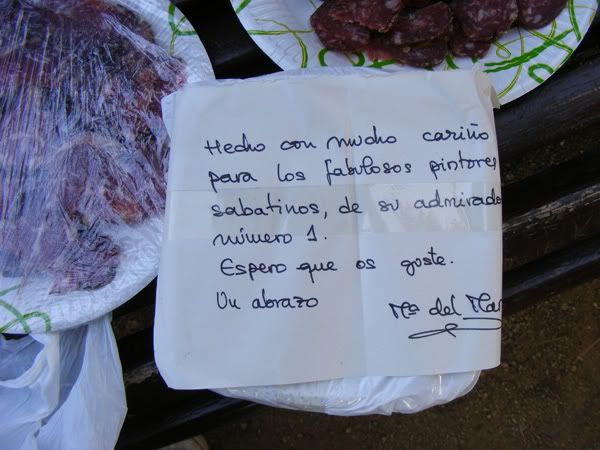 Hecho con mucho cariño
para los fabulosos pintores
sabatinos, de su admirado
número 1.
Espero que os guste.
Un abrazo
Mª del Mar